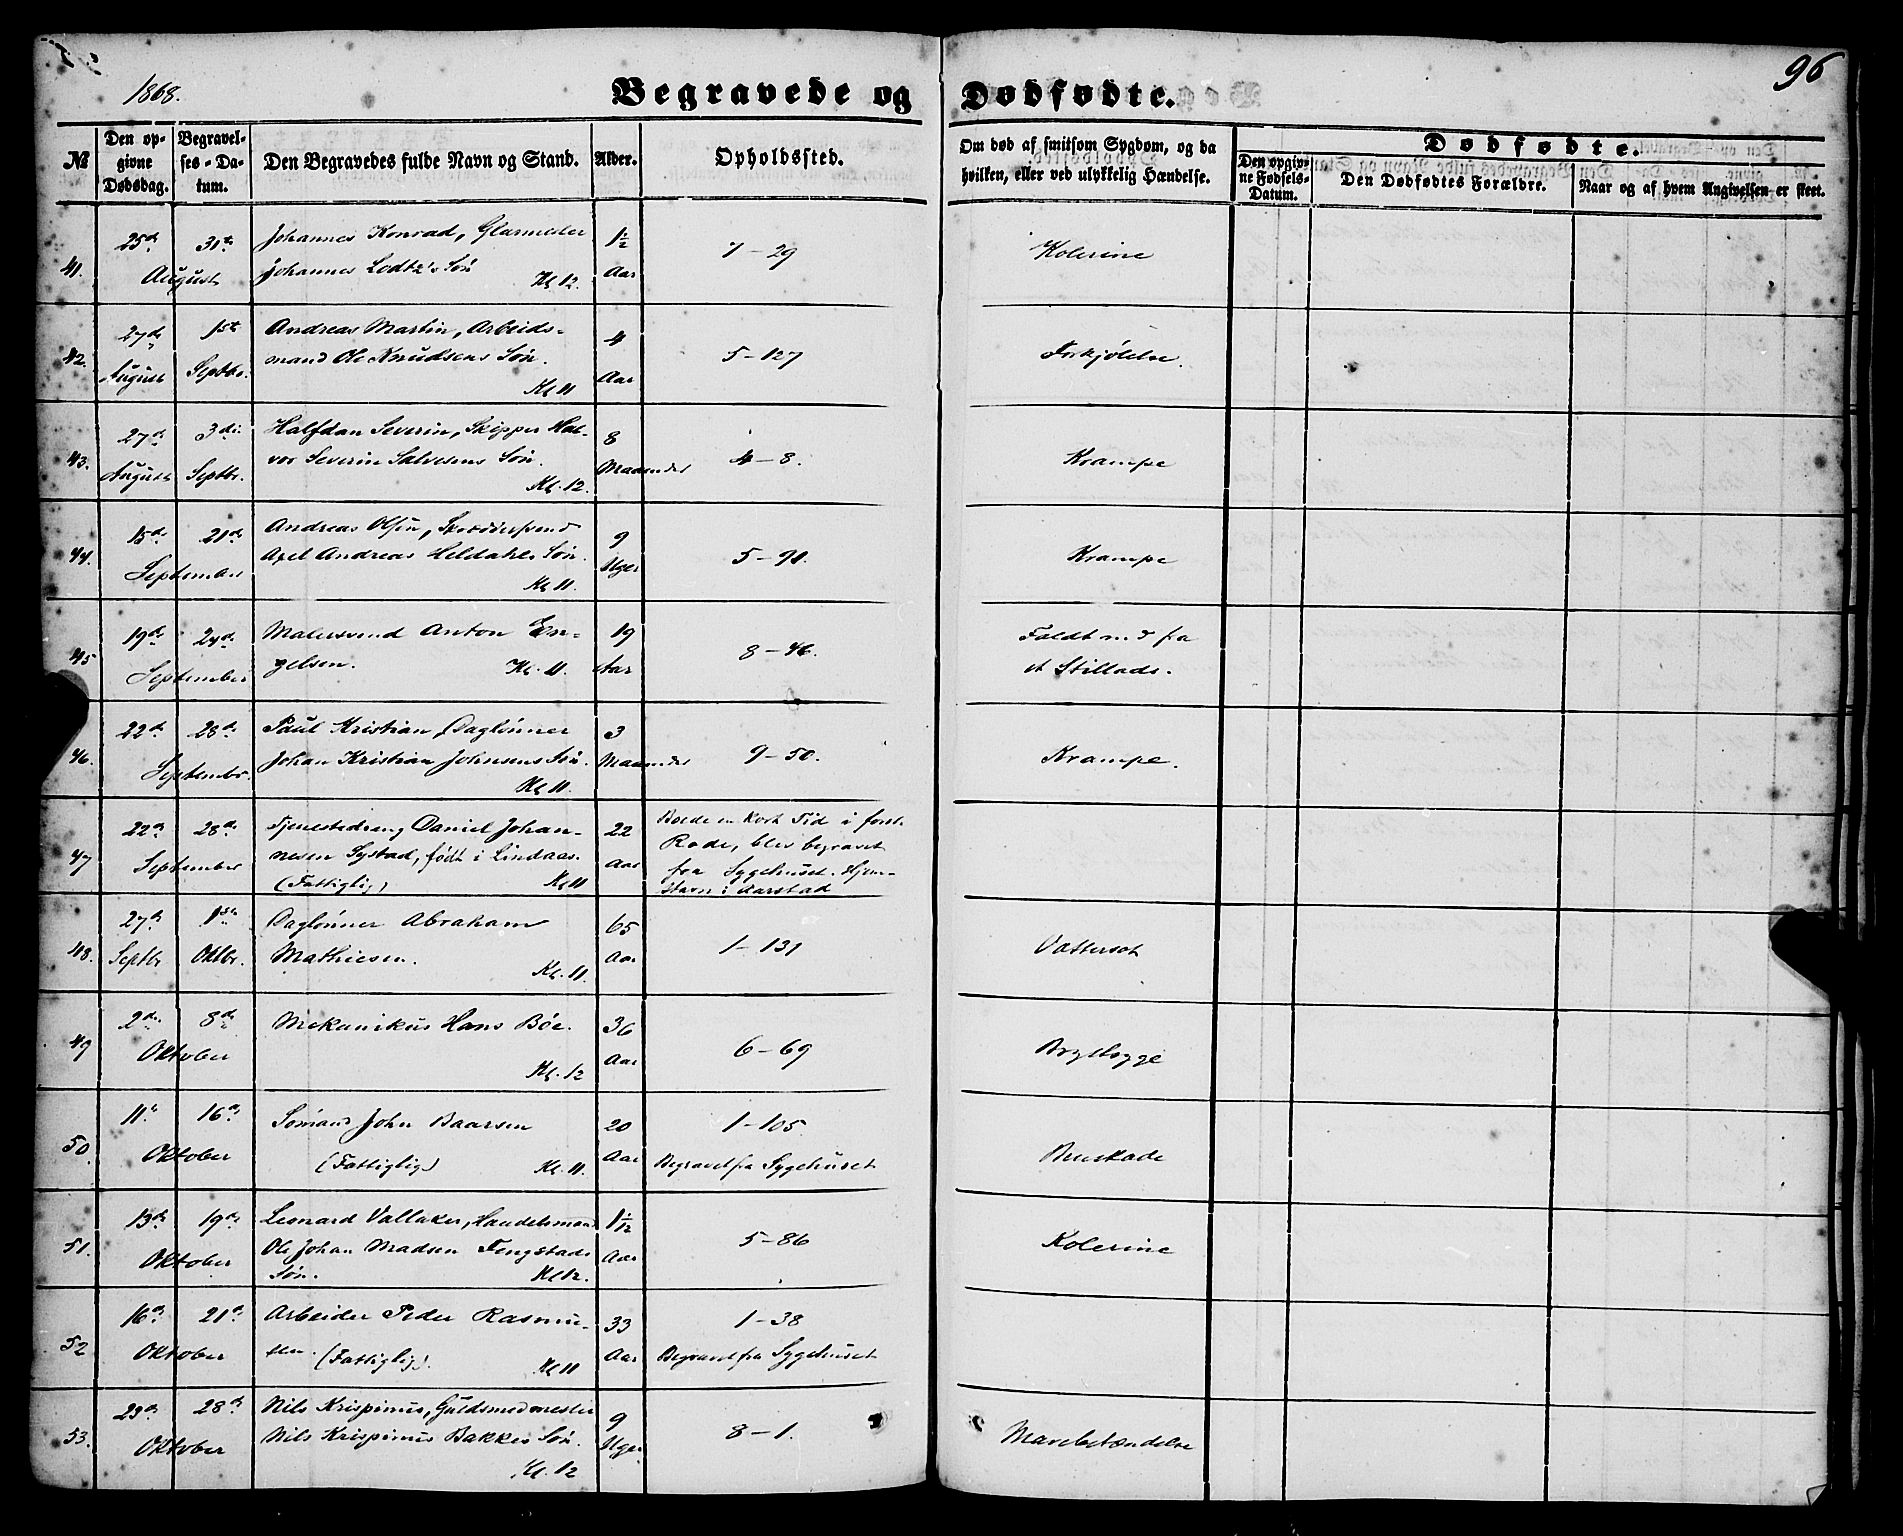 96
1868.
Begravede og Dødfødte.
№
Den op-
givne
Dødsdag.
Begravel-
ses-Da-
tum.
Den Begravedes fulde Navn og Stand.
Alder.
Opholdssted.
Om død af smitsom Sygdom, og da
hvilken, eller ved ulykkelig Hændelse.
Dødfødte.
Den opgiv-
ne Fødsels-
Datum.
Den Dødfødtes Forældre.
Naar og af hvem Angivelsen er skeet.
41.
25de
31te
August
Johannes Konrad, Glarmester
Johannes Lodtz's Søn
Kl 12.
1½
Aar
7-29
Kolerine
42.
27de
August
1ste
Septbr.
Andreas Martin, Arbeids-
mand Ole Knudsens Søn.
Kl 11
4
Aar
5-127
Forkjølelse.
43.
27de
August
3die
Septbr.
Halfdan Severin, Skipper Hal-
vor Severin Salvesens Søn.
Kl. 12.
8
Maaneder
4-8.
Krampe
44.
15de
21de
September
Andreas Olsen,
Axel Andreas Heldahls Søn.
Kl 11.
9
Uger
5-91.
Krampe
45
19de
24de
September
Malersvend Anton En-
gelsen.
Kl. 11.
19
Aar
8-46.
Faldt ned fra
et Stillads.
46.
22de
28de
Septembr.
Paul Kristian, Daglønner
Johan Kristian Johnsens Søn.
Kl 11.
3
Maaneder
9-50.
Krampe.
47
22de
28de
September
Tjenestedreng Daniel Johan-
nesen Systad, født i Lindaas.
(Fattiglig)
Kl 11
22
Aar
Boede en kort Tid i
Rode, blev begravet
fra Sygehuset. Hjem-
stavn i Aarstad
48.
27de
Septbr
1ste
Oktbr.
Daglønner Abraham
Mathiesen.
Kl. 11.
65
Aar
1-131
Vattersot
49
2den
8de
Oktober
Mekanikus Hans Böe.
Kl. 12
36
Aar
6-69
Brystsyge
50.
11te
16de
Oktober
Sømand John Baarsen
(Fattiglig)
Kl. 11.
20
Aar
1-105.
Begravet fra Sygehuset
Benskade
51.
13de
19de
Oktober
Leonard Vallaker, Handelsmand
Ole Johan Madsen Tengstads
Søn.
Kl 12.
1 1/12
Aar
5-86
Kolerine
52
16de
21de
Oktober
Arbeider Peder Rasmu-
sen. (Fattiglig).
Kl 11
33
Aar
1-38
Begravet fra Sygehuset
53.
23de
28de
Oktober
Nils Krispinus, Guldsmedmester
Nils Krispinus Bakkes Søn.
Kl. 12
9
Uger
8-1.
Mavebetændelse